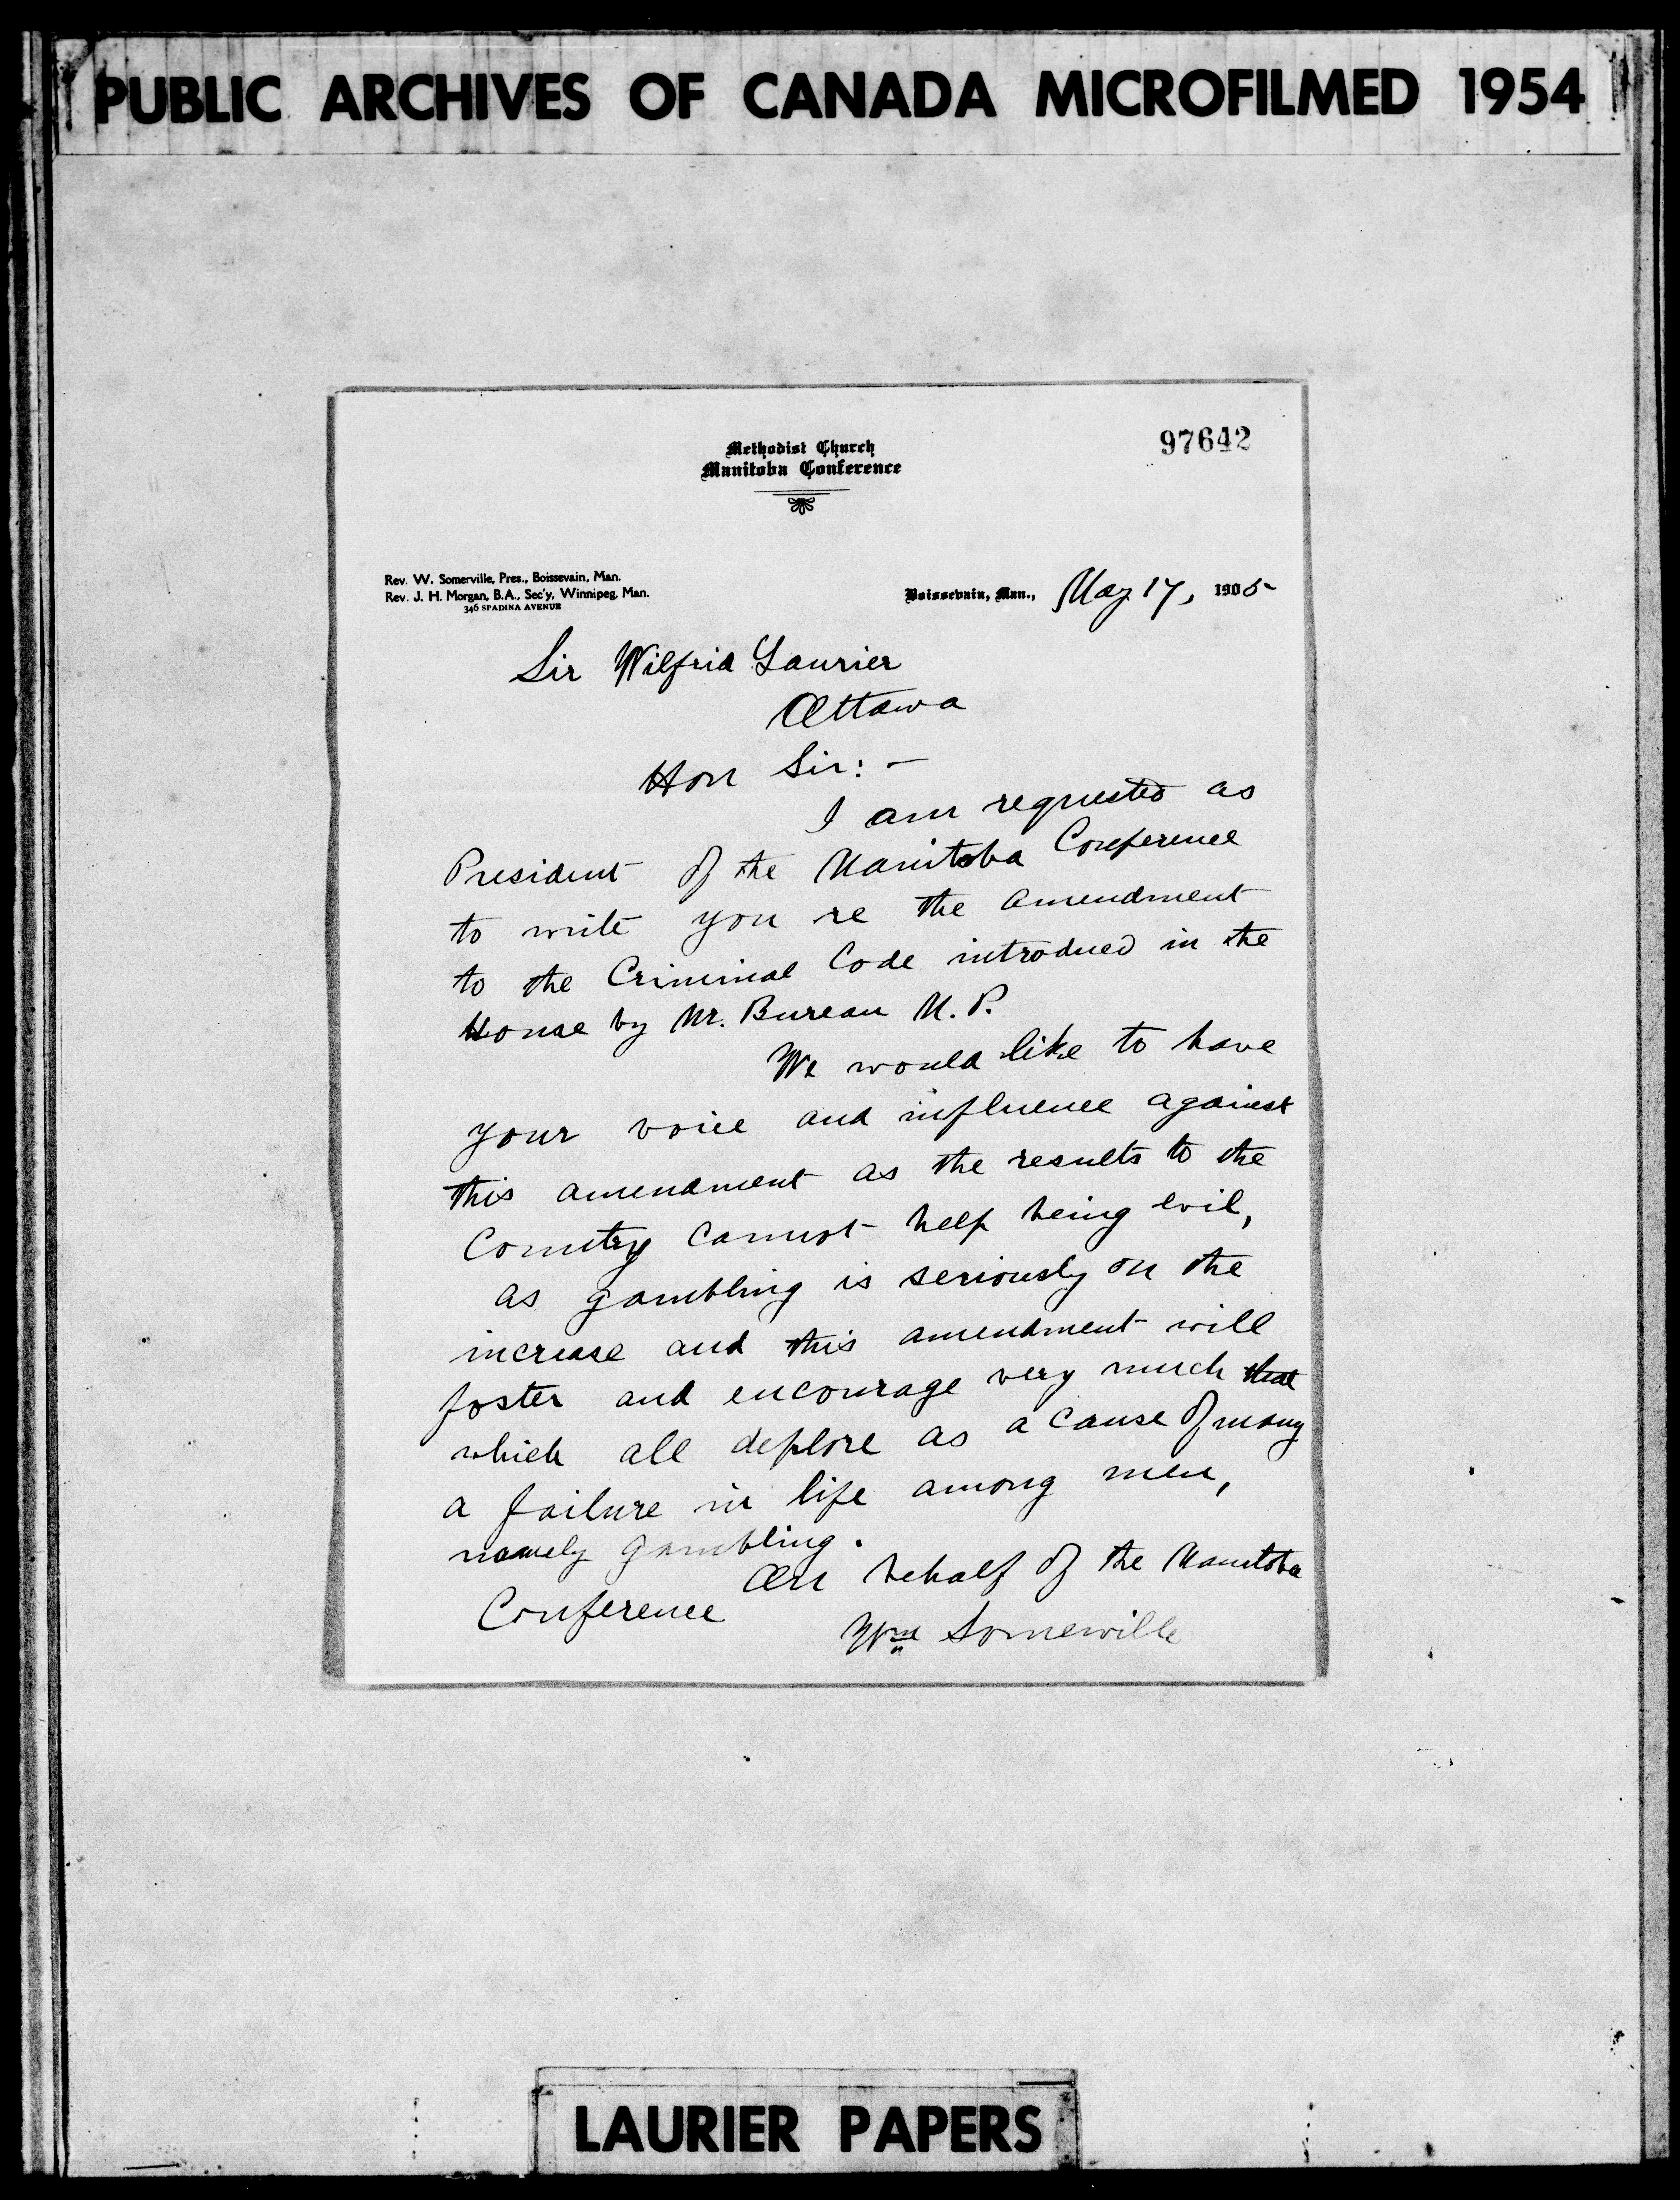 PUBLIC ARCHIVES OF CANADA MICROFILMED 1954
97642
Methodist Church
Manitoba Conference
Rev. W. Somerville, Pres., Boissevain, Man.
Rev. J. H. Morgan, B.A., Sec'y, Winnipeg, Man.
346 SPADINA AVENUE
Boissevain, Man., May 17, 1905
Sir Wilfrid Laurier
Ottawa
Hon Sir: -
I am requested as
President of the Manitoba Conference
to write you re the amendment
to the Criminal Code introduced in the
House by Mr. Bureau M. P.
We would like to have
your voice and influence against
this amendment as the results to the
Country cannot help being evil,
as gambling is seriously on the
increase and this amendment will
foster and encourage very much that
which all deplore as a cause of many
a failure in life among men,
namely gambling.
On behalf of the Manitoba
Conference
Wm Somerville
LAURIER PAPERS